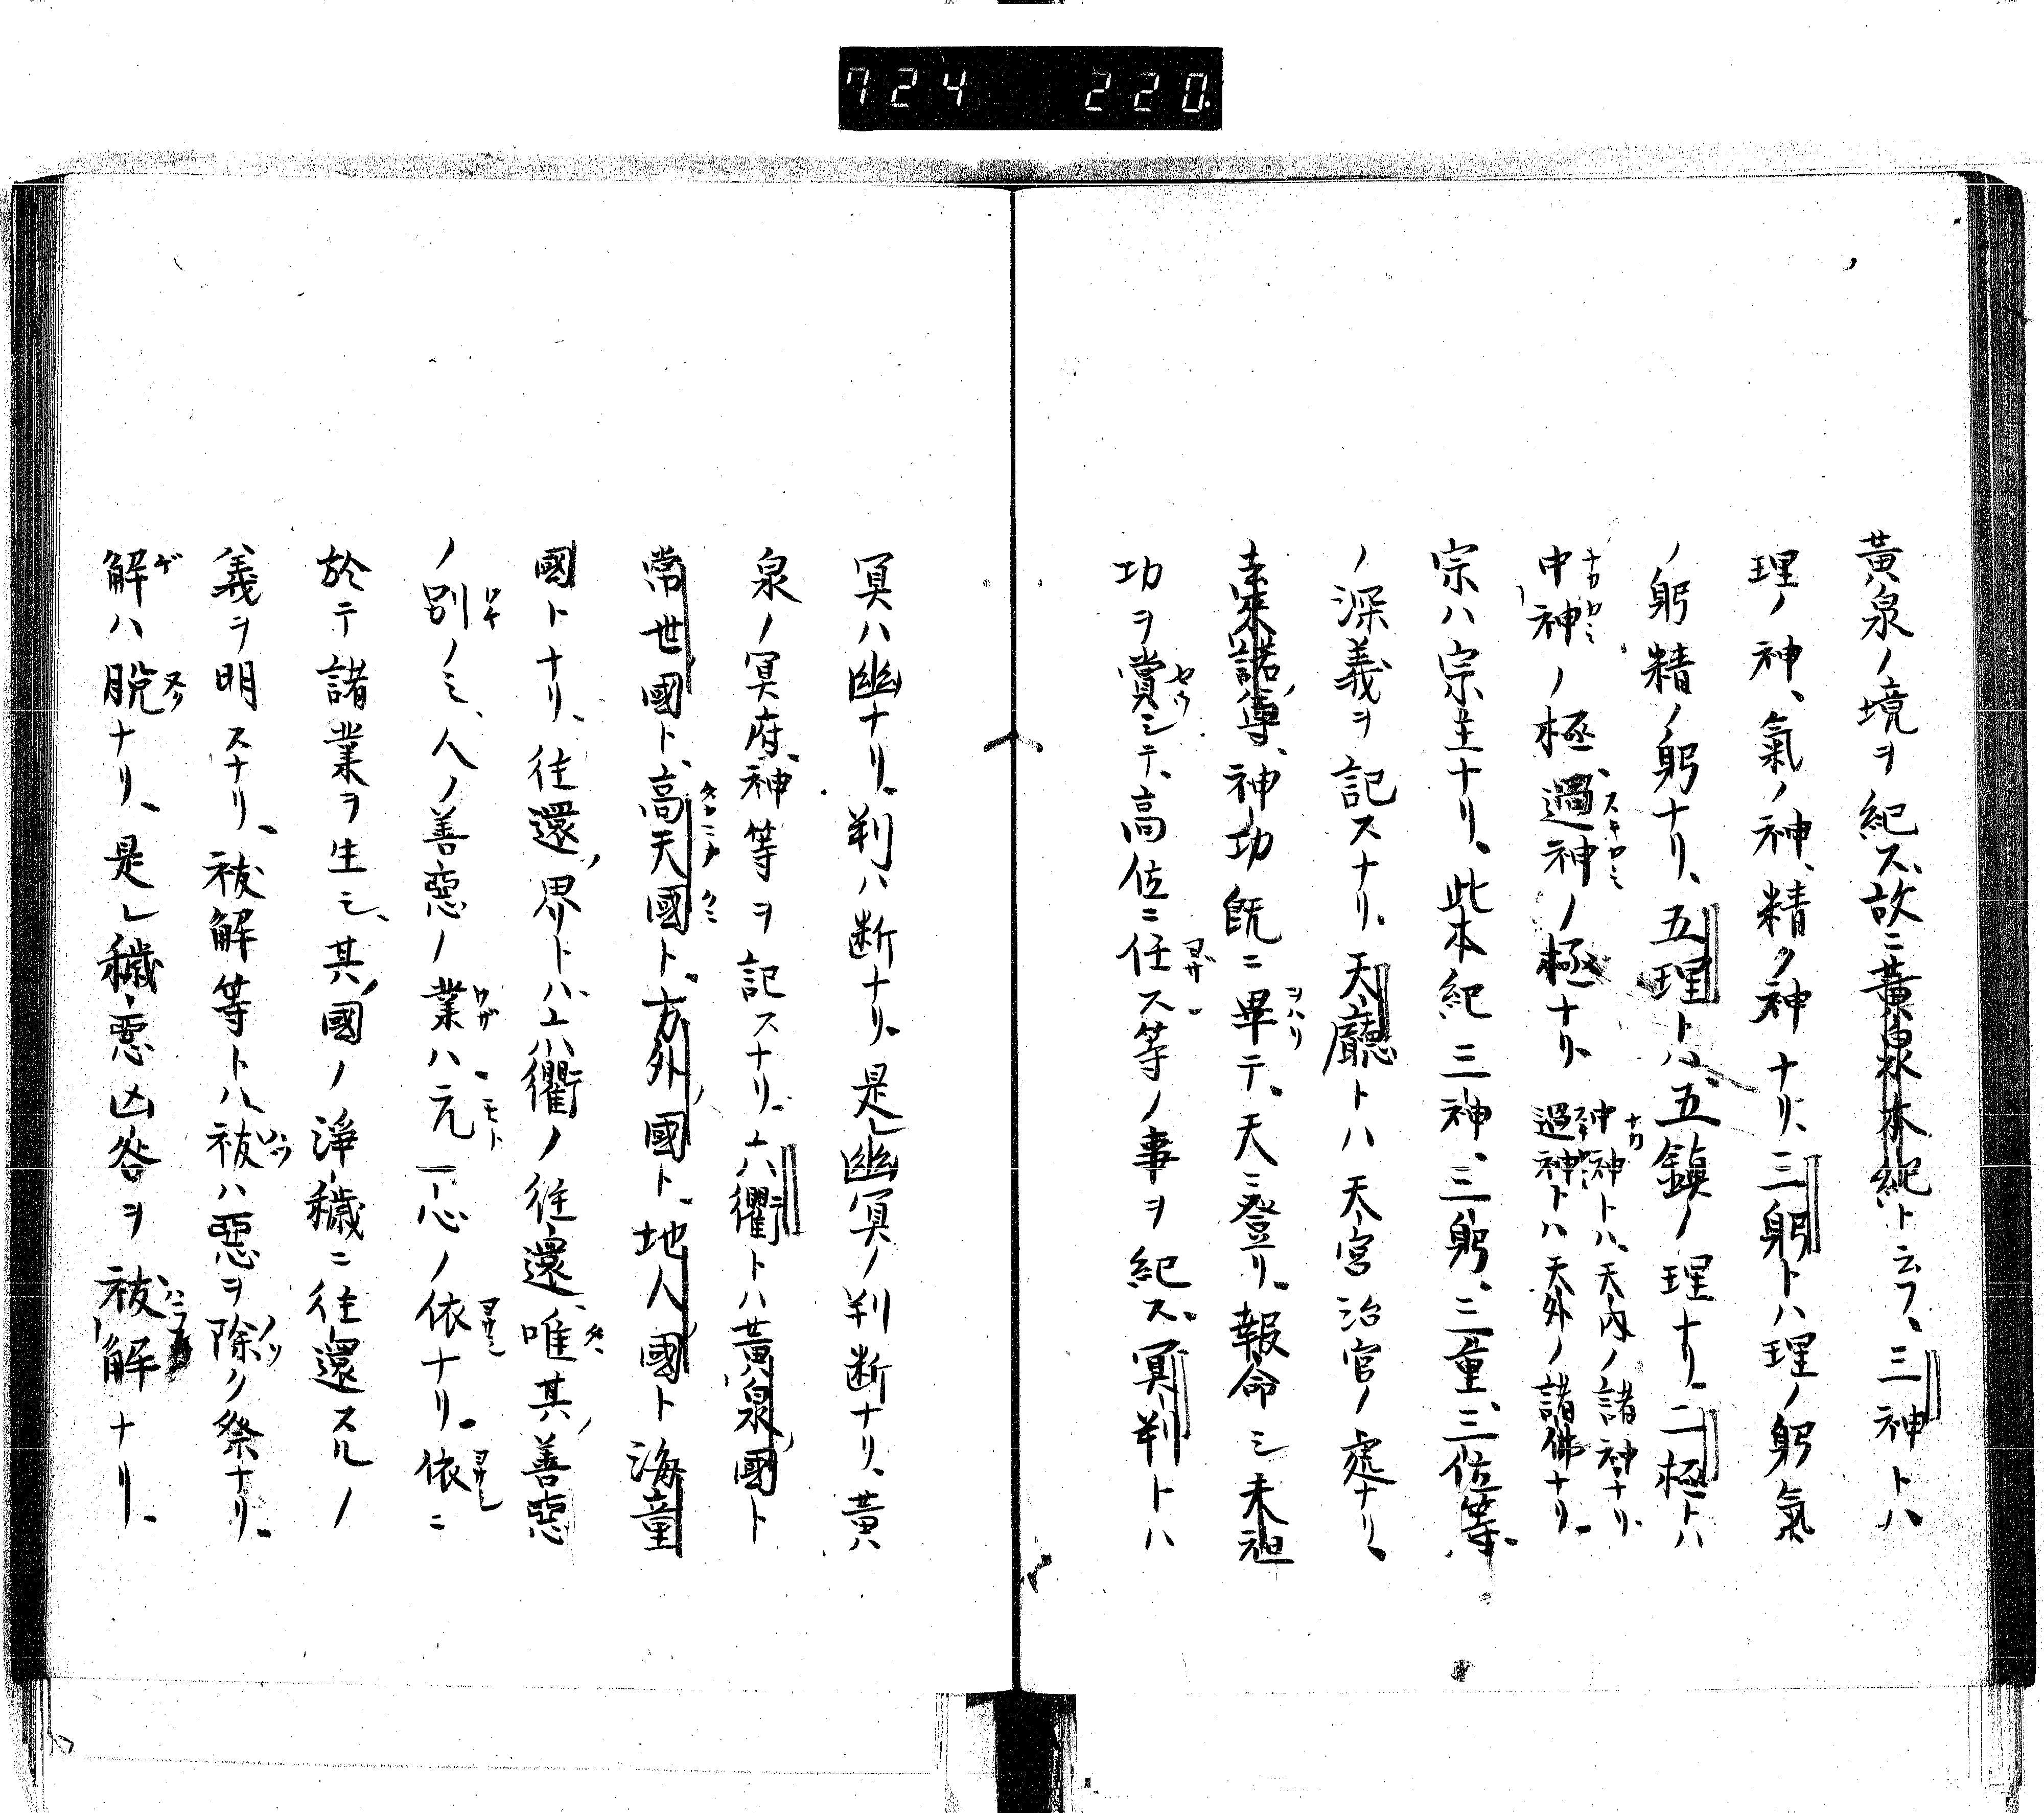 724 220.
黃泉ノ境ヲ紀ス、故ニ黃泉本紀ト云フ、三神トハ
理ノ神、氣ノ神、精ノ神ナリ、三躬トハ理ノ躬氣
ノ躬精ノ躬ナリ、五理トハ五鎮ノ理ナリ、二極トハ
中神ノ極、過神ノ極ナリ、中神トハ、天內ノ諸神ナリ、過神トハ天外ノ諸佛ナリ、
宗ハ宗主ナリ、此本紀三神、三躬、三重、三位等
ノ深義ヲ記スナリ、天廳トハ天宮治官ノ處ナリ、
去來諾尊、神功既ニ畢テ、天ニ登リ、報命シ未
功ヲ賞シテ、高位ニ任ス等ノ事ヲ紀ス、冥判トハ
冥ハ幽ナリ、判ハ断ナリ、是レ幽冥ノ判断ナリ、黃
泉ノ冥府、神等ヲ記スナリ、六衢トハ黃泉國ト
常世國ト、高天國ト、方外國ト、地人國ト海童
國トナリ、往還界トハ六衢ノ往還、唯其善惡
ノ別ノミ、人ノ善惡ノ業ハ元一心ノ依ナリ、依ニ
於テ諸業ヲ生シ、其國ノ淨穢ニ往還スルノ
義ヲ明スナリ、祓解等トハ、祓ハ惡ヲ除ク祭ナリ、
解ハ脫ナリ、是レ穢惡凶咎ヲ祓解ナリ、